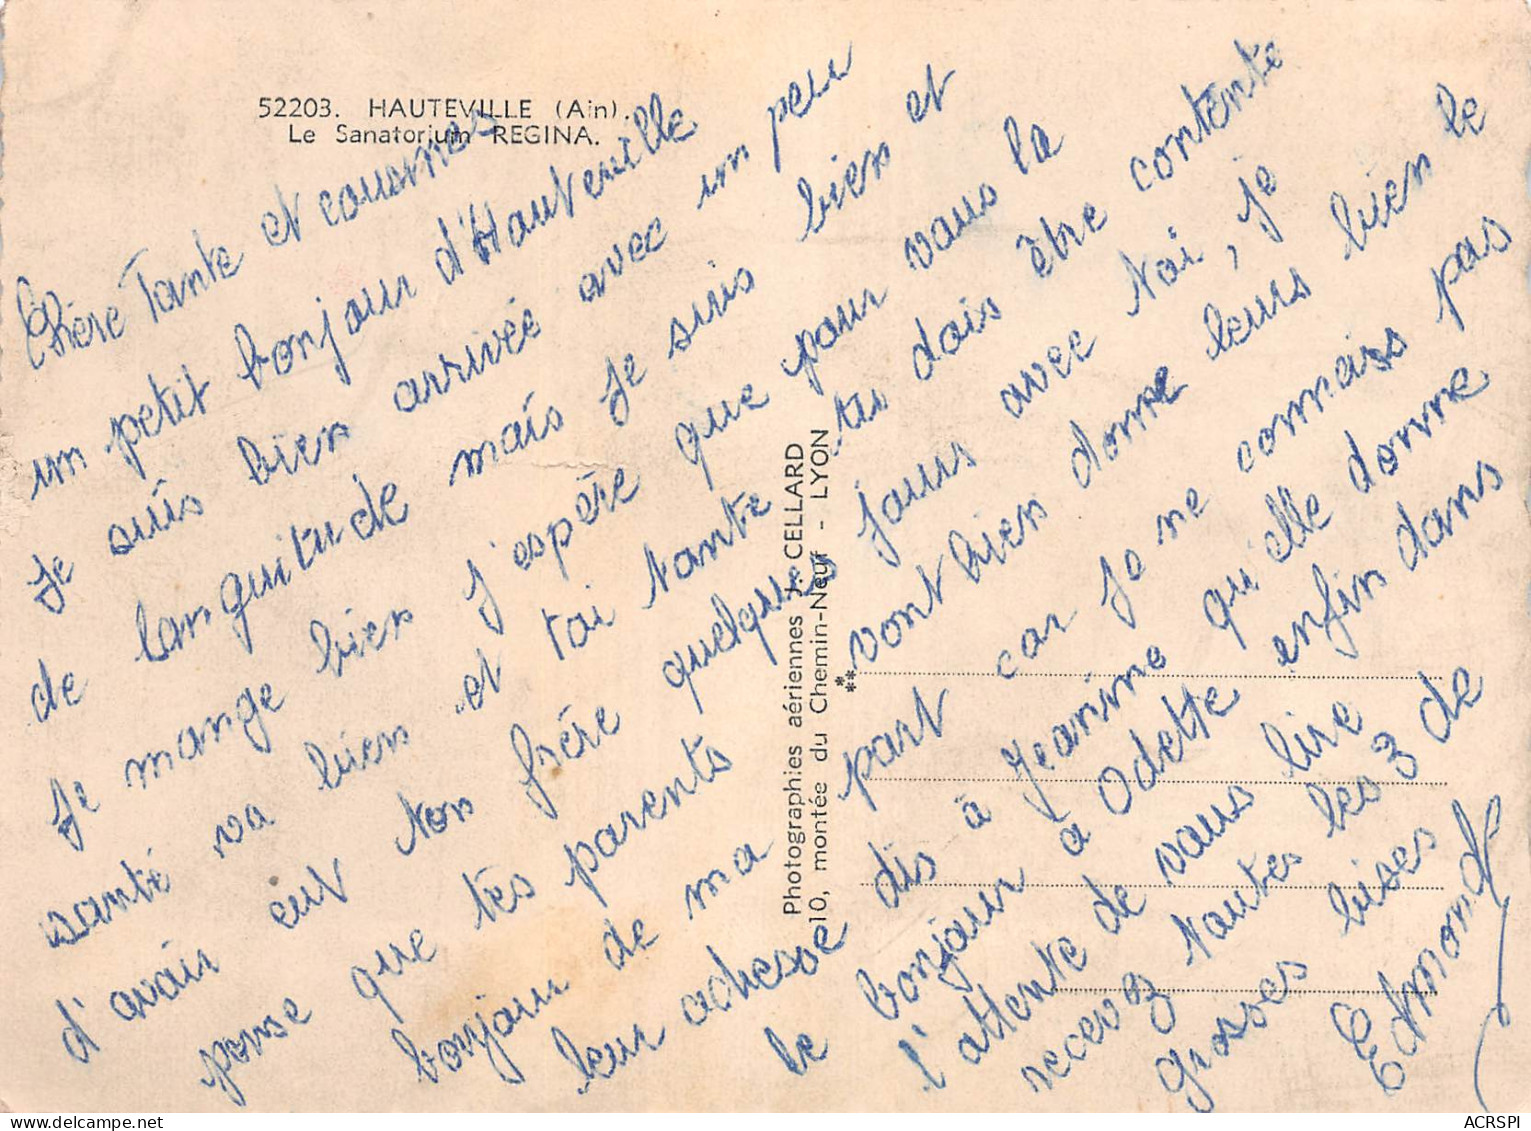 52203. HAUTEVILLE (Ain).
Le Sanatorium REGINA.
Chère Tante et cousines
un petit bonjour d'Hauteville
Je suis bien arrivée avec un peu
de languitude mais je suis bien et
Je mange bien j'espère que pour vous la
santé va bien et toi tante tu dois être contente
d'avoir eut ton frère quelques jours avec toi, je
pense que tes parents vont bien donne leurs bien le
bonjour de ma part car je ne connaiss pas
leur adresse dis à Jeanine qu'elle donne
le bonjour à Odette enfin dans
l'attente de vous lire
recevez toutes les 3 de
grosses bises
Edmond
Photographies aériennes J. CELLARD
10, montée du Chemin-Neuf - LYON
***
ACRSPI